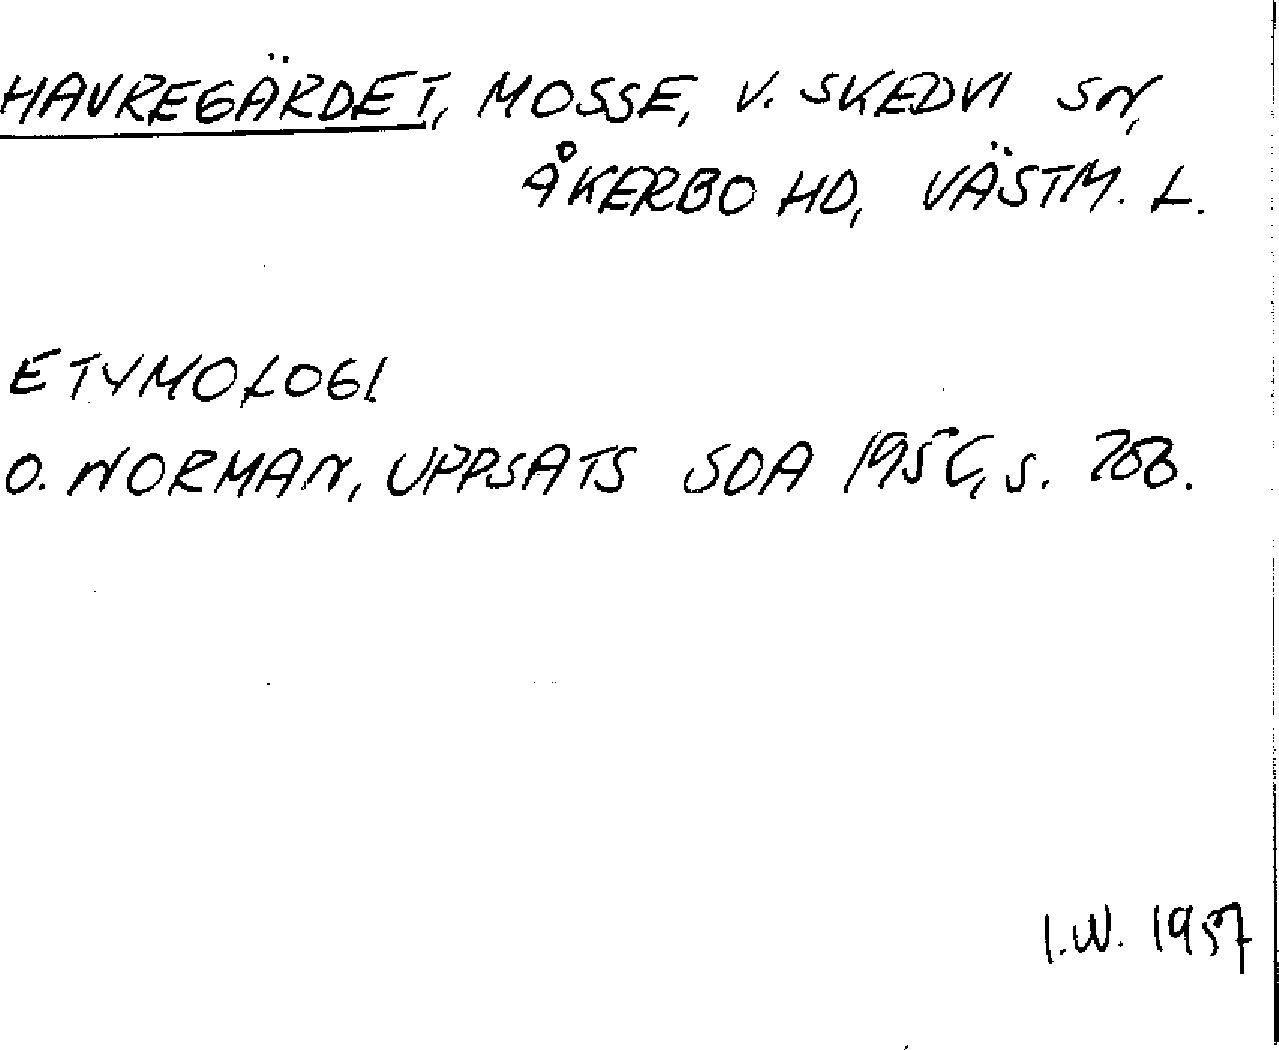 HAVREGÄRDET, MOSSE, V. SKEDVI SN,
ÅKERBO HD, VÄSTM. L.
ETYMOLOGI
O. NORMAN, UPPSATS SOA 1956, s.
I.W. 1957